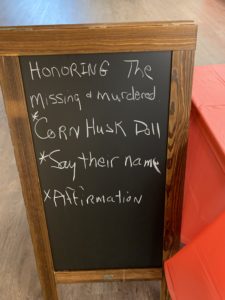 HONORING The
missing & murdered
*CORN HUSK Doll
*Say their name
*Affirmation